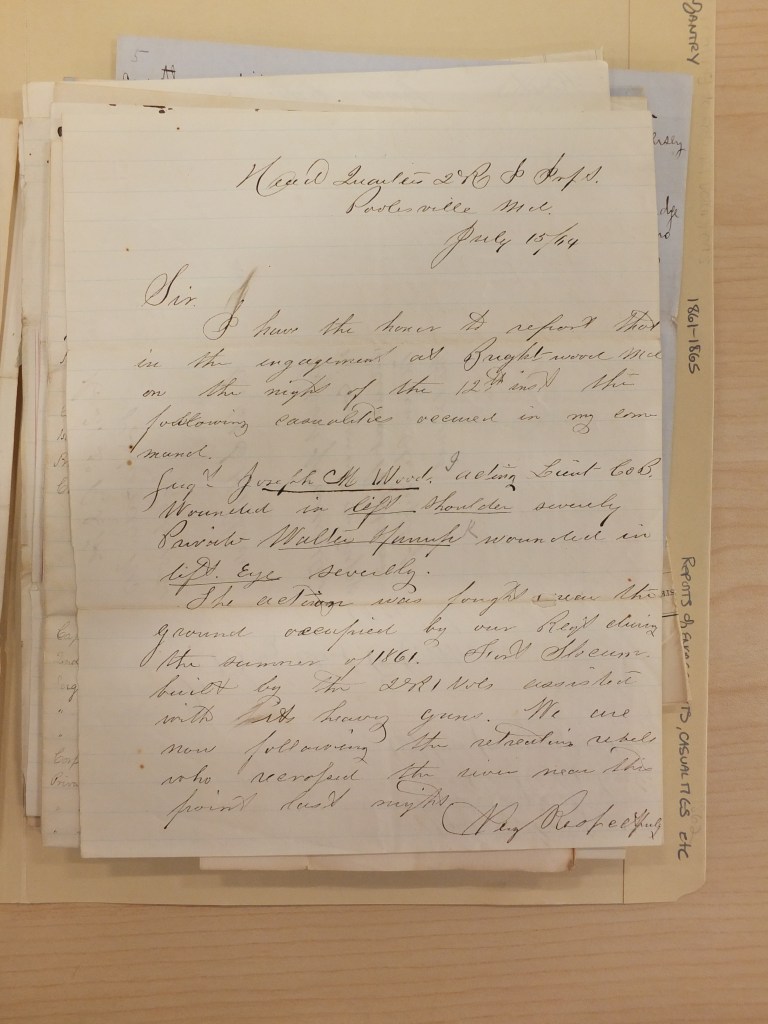 Head Quarters 2 R I Inf's.
Poolesville Md.
July 15/64
Sir.
I have the honor to report that
in the engagement at Brightwood Md
on the night of the 12th inst the
following casualities occured in my com
mand.
Serg't Joseph M Wood. acting Lieut Co B.
Wounded in left shoulder severly
Private Walter wounded in
left. Eye severlly.
The action was fought near the
ground occupied by our Regt during
the summer of 1861. Fort Slocum.
built by the 2 R I Vols assisted
with its heavy guns. We are
now following the retreating rebels
who recrossed the river near this
point last night
Very Respectfully
1861-1865
REPORTS OF
CASUALTIES etc